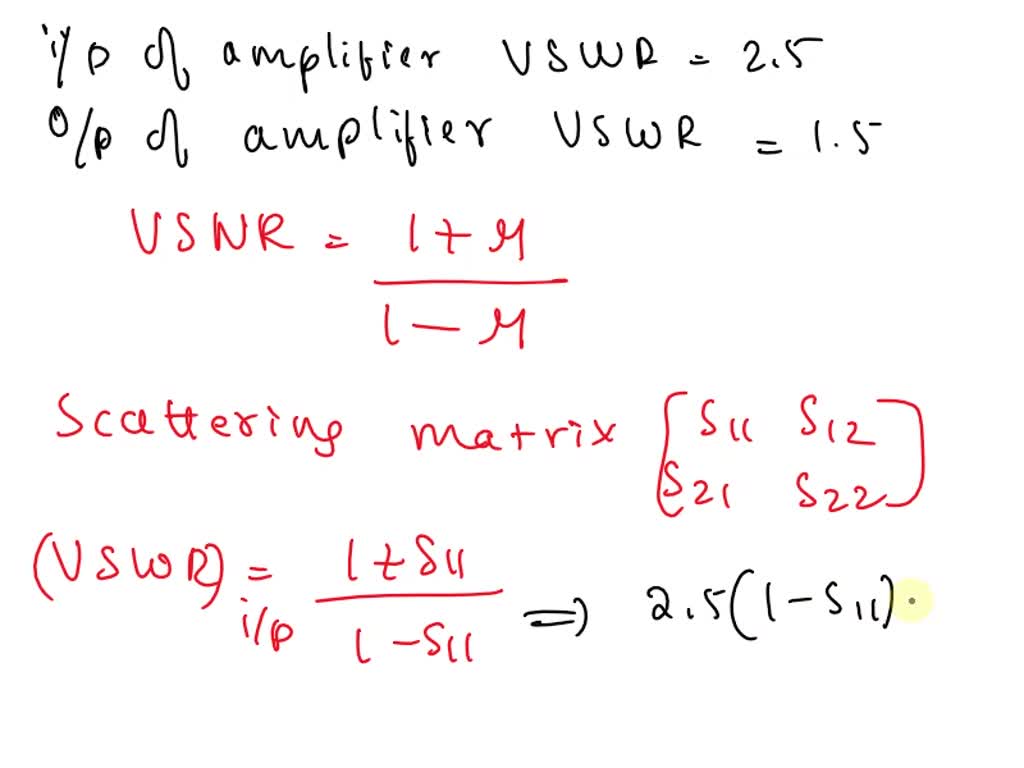 i/p of amplifier VSWR = 2.5
o/p of amplifier VSWR = 1.5
VSWR = 1 + Γ / 1 - Γ
Scattering matrix [S11 S12
S21 S22]
(VSWR) i/p = 1 + S11 / 1 - S11 ⇒ 2.5(1 - S11)